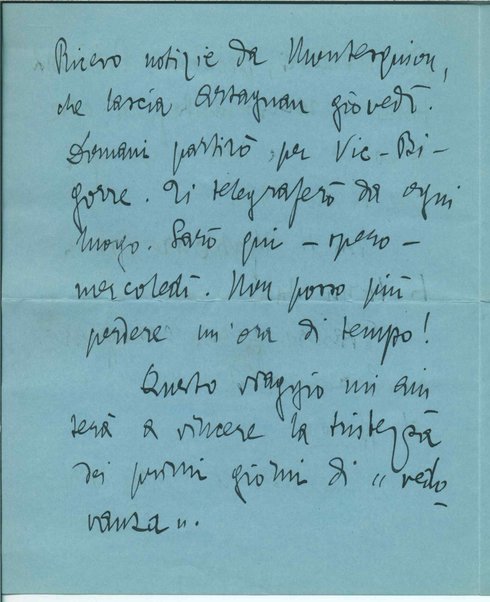 Ricevo notizie da Montesquiou,
che lascia Artagnan giovedì.
Domani partirò per Vic-Bi-
gorre. Ti telegraferò da ogni
luogo. Sarò qui - spero -
mercoledì. Non posso più
perdere un'ora di tempo!
Questo viaggio mi aiu
terà a vincere la tristezza
dei primi giorni di "vedo
vanza".